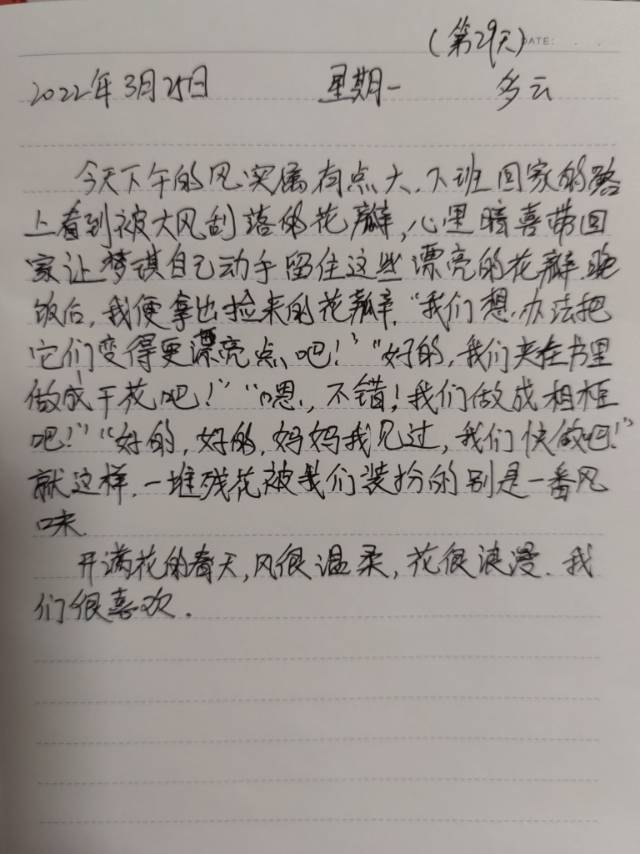 (第29天) DATE:
2022年3月25日 星期一 多云
今天下午的风实属有点大.下班回家的路
上看到被大风刮落的花瓣,心里暗喜带回
家让梦琪自己动手留住这些漂亮的花瓣.晚
饭后,我便拿出捡来的花瓣.“我们想办法把
它们变得更漂亮点吧!”“好的,我们夹在书里
做成干花吧!”“嗯,不错!我们做成相框
吧!”“好的,好的,妈妈我见过,我们快做吧!”
就这样.一堆残花被我们装扮的别是一番风
味.
开满花的春天,风很温柔,花很浪漫.我
们很喜欢.